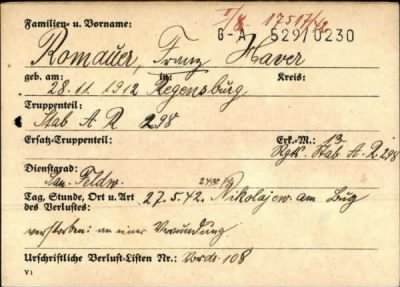 I/8 17517/42
Familien- u. Vorname: G-A 529/0230
Romauer, Franz Xaver
geb. am: in: Kreis:
28.11.1912 Regensburg
Truppenteil:
Stab A R 298
Ersatz-Truppenteil: Erk.-M.: 13
Stab A. R 298
Dienstgrad:
San. Feldw.
Tag, Stunde, Ort u. Art 27.5.42. Nikolajew am Bug
des Verlustes:
verstorben: an einer Verwundung
Urschriftliche Verlust-Listen Nr.: 108
V1